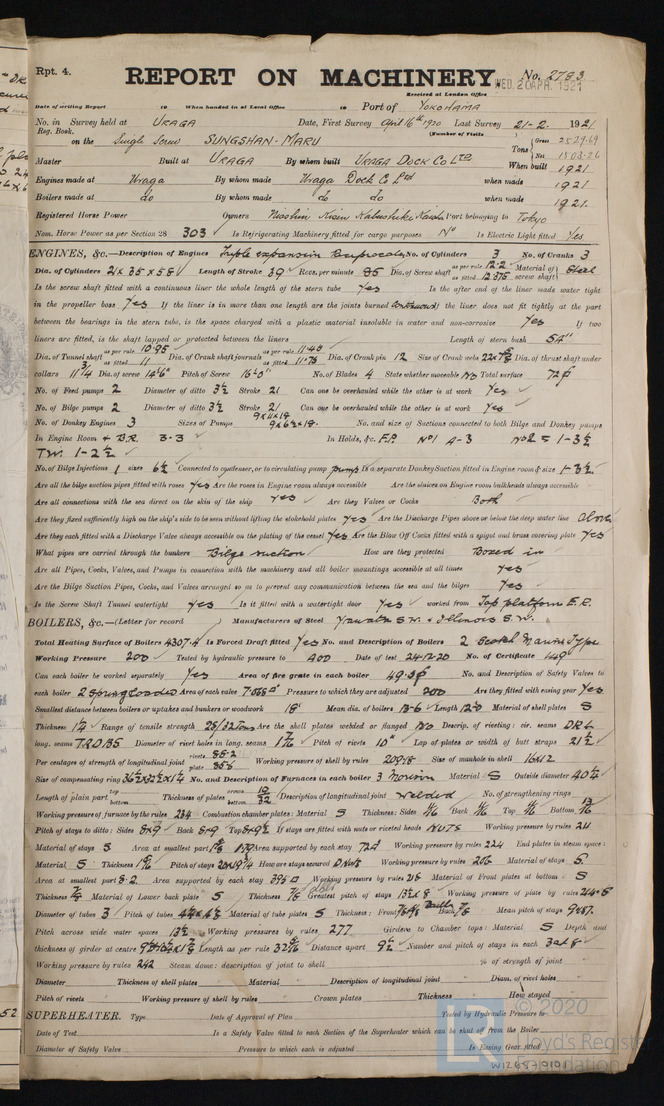 Rpt. 4.
REPORT ON MACHINERY
No. 2783
Received at London Office WED. 20 APR. 1921
Date of writing Report 19 When handed in at Local Office 19 Port of YOKOHAMA
No. in Survey held at URAGA Date, First Survey April 16th 1920 Last Survey 21-2- 1921
Reg. Book. (Number of Visits
on the Single Screw SUNGSHAN-MARU Tons { Gross 2529.69
Net 1503.26
Master Built at URAGA By whom built URAGA DOCK Co Ltd When built 1921
Engines made at Uraga By whom made Uraga Dock Co Ltd when made 1921
Boilers made at do By whom made do do when made 1921.
Registered Horse Power Owners Nisshin Kisen Kabushiki Kaisha Port belonging to Tokyo
Nom. Horse Power as per Section 28 303 Is Refrigerating Machinery fitted for cargo purposes No Is Electric Light fitted Yes
ENGINES, &c.—Description of Engines Triple expansion Reciprocal No. of Cylinders 3 No. of Cranks 3
Dia. of Cylinders 21 x 35 x 58 Length of Stroke 39 Revs. per minute 85 Dia. of Screw shaft as per rule 12.2 as fitted 12.375 Material of screw shaft Steel
Is the screw shaft fitted with a continuous liner the whole length of the stern tube Yes Is the after end of the liner made water tight
in the propeller boss Yes If the liner is in more than one length are the joints burned continuous If the liner does not fit tightly at the part
between the bearings in the stern tube, is the space charged with a plastic material insoluble in water and non-corrosive Yes If two
liners are fitted, is the shaft lapped or protected between the liners Length of stern bush 54"
Dia. of Tunnel shaft as per rule 10.95 as fitted 11 Dia. of Crank shaft journals as per rule 11.49 as fitted 11.75 Dia. of Crank pin 12 Size of Crank webs Dia. of thrust shaft under
collars 11 3/4 Dia. of screw 14'6" Pitch of Screw 16'0" No. of Blades 4 State whether moveable No Total surface 72
No. of Feed pumps 2 Diameter of ditto 3 1/2 Stroke 21 Can one be overhauled while the other is at work Yes
No. of Bilge pumps 2 Diameter of ditto 3 1/2 Stroke 21 Can one be overhauled while the other is at work Yes
No. of Donkey Engines 3 Sizes of Pumps No. and size of Suctions connected to both Bilge and Donkey pumps
In Engine Room & B.R. 3-3 In Holds, &c. F.P. No1 2-3 No2 = 1-3 1/2
T.W. 1-2 1/2
No. of Bilge Injections 1 sizes 6 1/2 Connected to condenser, or to circulating pump pump Is a separate Donkey Suction fitted in Engine room & size 1-3 1/2
Are all the bilge suction pipes fitted with roses Yes Are the roses in Engine room always accessible Are the sluices on Engine room bulkheads always accessible
Are all connections with the sea direct on the skin of the ship Yes Are they Valves or Cocks Both
Are they fixed sufficiently high on the ship's side to be seen without lifting the stokehold plates Yes Are the Discharge Pipes above or below the deep water line Above
Are they each fitted with a Discharge Valve always accessible on the plating of the vessel Yes Are the Blow Off Cocks fitted with a spigot and brass covering plate Yes
What pipes are carried through the bunkers Bilge suction How are they protected Boxed in
Are all Pipes, Cocks, Valves, and Pumps in connection with the machinery and all boiler mountings accessible at all times Yes
Are the Bilge Suction Pipes, Cocks, and Valves arranged so as to prevent any communication between the sea and the bilges Yes
Is the Screw Shaft Tunnel watertight Yes Is it fitted with a watertight door Yes worked from Top platform E.R.
BOILERS, &c.—(Letter for record Manufacturers of Steel Yawata S.W. & Illinois S.W.
Total Heating Surface of Boilers 4307.4 Is Forced Draft fitted Yes No. and Description of Boilers 2 Scotch Marine Type
Working Pressure 200 Tested by hydraulic pressure to 400 Date of test 24-12-20 No. of Certificate 149
Can each boiler be worked separately Yes Area of fire grate in each boiler 49.5 No. and Description of Safety Valves to
each boiler 2 Spring loaded Area of each valve 7.068 Pressure to which they are adjusted 200 Are they fitted with easing gear Yes
Smallest distance between boilers or uptakes and bunkers or woodwork 18" Mean dia. of boilers 13-6 Length 12-0 Material of shell plates S
Thickness 1 1/4 Range of tensile strength 28/32 Tons Are the shell plates welded or flanged No Descrip. of riveting: cir. seams D.R.L.
long. seams T.R.D.B.S Diameter of rivet holes in long. seams 1 7/16 Pitch of rivets 10" Lap of plates or width of butt straps 21 1/2
Per centages of strength of longitudinal joint rivets 85.2 plate 85.6 Working pressure of shell by rules 209.8 Size of manhole in shell 16x12
Size of compensating ring No. and Description of Furnaces in each boiler 3 Morison Material S Outside diameter 40 1/4
Length of plain part top bottom Thickness of plates crown bottom Description of longitudinal joint welded No. of strengthening rings
Working pressure of furnace by the rules 234 Combustion chamber plates: Material S Thickness: Sides 11/16 Back 11/16 Top 11/16 Bottom 13/16
Pitch of stays to ditto: Sides 8x9 Back 8x9 Top If stays are fitted with nuts or riveted heads NUTS Working pressure by rules 211
Material of stays S Area at smallest part Area supported by each stay 72 Working pressure by rules 224 End plates in steam space:
Material S Thickness Pitch of stays How are stays secured D Nuts Working pressure by rules 206 Material of stays S.
Area at smallest part 8.2 Area supported by each stay 395 Working pressure by rules 216 Material of Front plates at bottom S
Thickness 7/8 Material of Lower back plate S Thickness 7/8 Greatest pitch of stays Working pressure of plate by rules 214.8
Diameter of tubes 3 Pitch of tubes Material of tube plates S Thickness: Front Back 7/8 Mean pitch of stays
Pitch across wide water spaces 13 1/2 Working pressures by rules 277 Girders to Chamber tops: Material S Depth and
thickness of girder at centre Length as per rule Distance apart 9 1/2 Number and pitch of stays in each 3 at 8
Working pressure by rules 242 Steam dome: description of joint to shell % of strength of joint
Diameter Thickness of shell plates Material Description of longitudinal joint Diam. of rivet holes
Pitch of rivets Working pressure of shell by rules Crown plates Thickness How stayed
SUPERHEATER. Type Date of Approval of Plan Tested by Hydraulic Pressure to
Date of Test Is a Safety Valve fitted to each Section of the Superheater which can be shut off from the Boiler
Diameter of Safety Valve Pressure to which each is adjusted Is Easing Gear fitted
52
LR
© 2020
Lloyd's Register
Foundation
W1265-0101